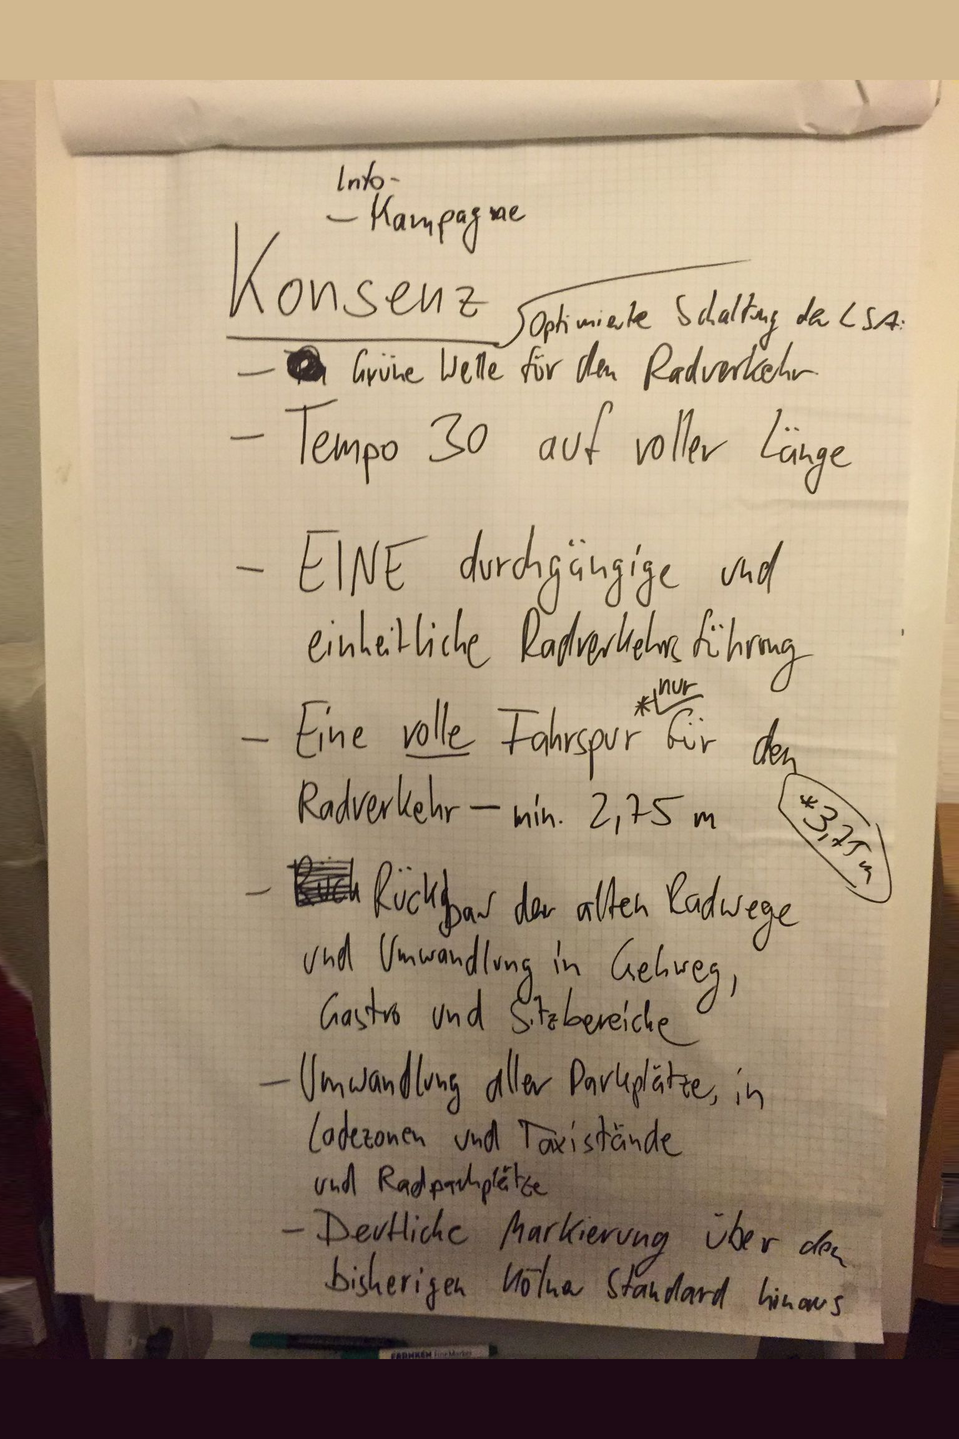 Info-
– Kampagne
Konsenz
Optimierte Schaltung der LSA:
– Grüne Welle für den Radverkehr
– Tempo 30 auf voller Länge
– EINE durchgängige und
einheitliche Radverkehrsführung
– Eine volle Fahrspur *nur für den
Radverkehr – min. 2,75 m
*3,75m
– Rückbau der alten Radwege
und Umwandlung in Gehweg,
Gastro und Sitzbereiche
– Umwandlung aller Parkplätze, in
Ladezonen und Taxistände
und Radparkplätze
– Deutliche Markierung über den
bisherigen Kölner Standard hinaus
FRANKEN